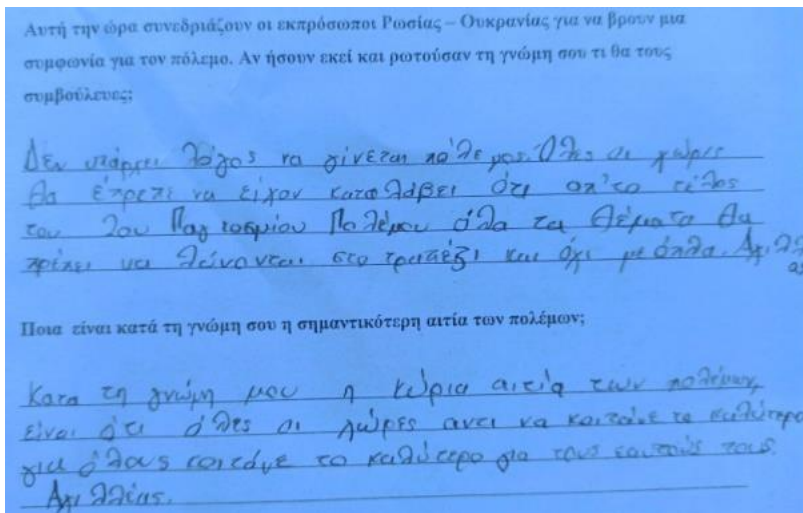 Αυτή την ώρα συνεδριάζουν οι εκπρόσωποι Ρωσίας – Ουκρανίας για να βρουν μια
συμφωνία για τον πόλεμο. Αν ήσουν εκεί και ρωτούσαν τη γνώμη σου τι θα τους
συμβούλευες;
Δεν υπάρχει λόγος να γίνεται πόλεμος. Όλες οι χώρες
θα έπρεπε να είχαν καταλάβει ότι απ'το τέλος
του 2ου Παγκοσμίου Πολέμου όλα τα θέματα θα
πρέπει να λύνονται στο τραπέζι και όχι με όπλα. Αχιλλέ
ας
Ποια είναι κατά τη γνώμη σου η σημαντικότερη αιτία των πολέμων;
Κατα τη γνώμη μου η κύρια αιτία των πολέμων,
είναι ότι όλες οι χώρες αντι να κοιτάνε το καλύτερο
για όλους κοιτάνε το καλύτερο για τους εαυτούς τους.
Αχιλλέας.